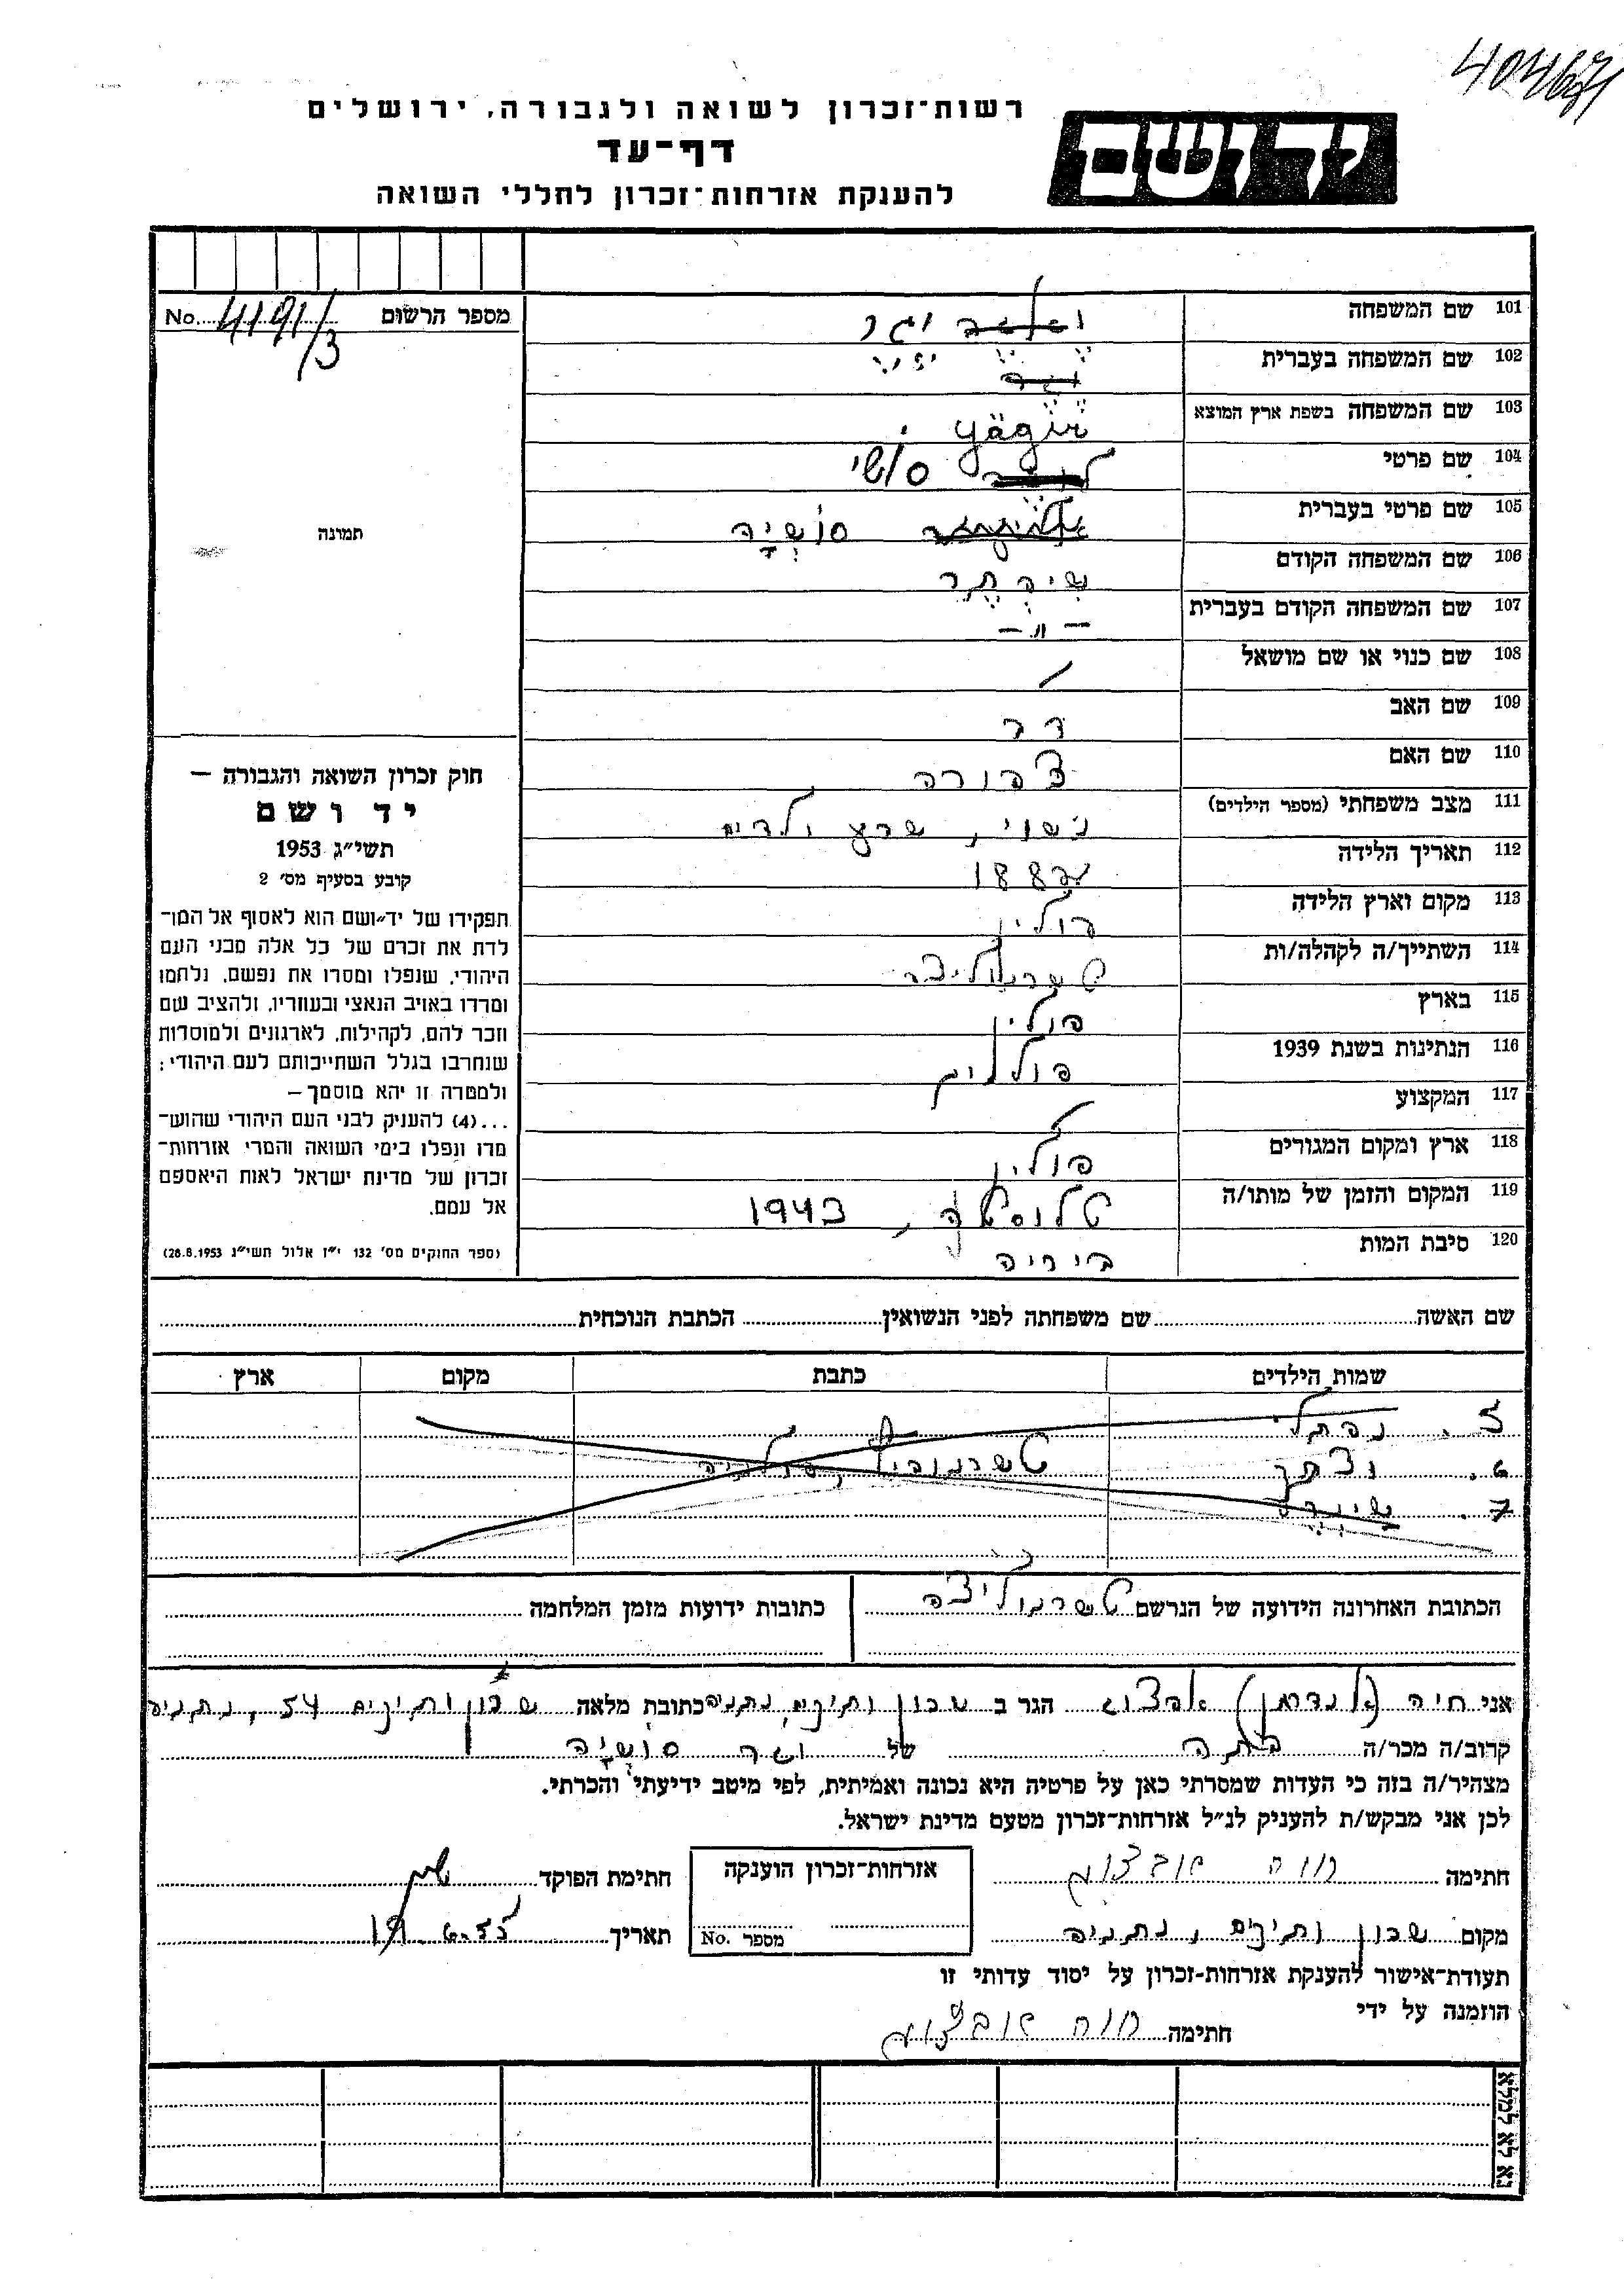 404671
רשות־זכרון לשואה ולגבורה, ירושלים
דף־עד
להענקת אזרחות־זכרון לחללי השואה
יד ושם
מספר הרשום No. 4191/3
תמונה
חוק זכרון השואה והגבורה —
יד ושם
תשי״ג 1953
קובע בסעיף מס׳ 2
תפקידו של יד־ושם הוא לאסוף אל המו־
לדת את זכרם של כל אלה מבני העם
היהודי, שנפלו ומסרו את נפשם, נלחמו
ומרדו באויב הנאצי ובעוזריו, ולהציב שם
וזכר להם, לקהילות, לארגונים ולמוסדות
שנחרבו בגלל השתייכותם לעם היהודי;
ולמטרה זו יהא מוסמך —
...(4) להעניק לבני העם היהודי שהוש־
מדו ונפלו בימי השואה והמרי אזרחות־
זכרון של מדינת ישראל לאות היאספם
אל עמם.
(ספר החוקים מס׳ 132 י״ז אלול תשי״ג 28.8.1953)
101 שם המשפחה יגר
102 שם המשפחה בעברית
103 שם המשפחה בשפת ארץ המוצא Yägir
104 שם פרטי סושי
105 שם פרטי בעברית סושיה
106 שם המשפחה הקודם
107 שם המשפחה הקודם בעברית — ״ —
108 שם כנוי או שם מושאל /
109 שם האב דב
110 שם האם צפורה
111 מצב משפחתי (מספר הילדים) נשוי, שבע ילדים
112 תאריך הלידה 1882
113 מקום וארץ הלידה פולין
114 השתייך/ה לקהלה/ות טשרנוליצה
115 בארץ פולין
116 הנתינות בשנת 1939 פולנים
117 המקצוע
118 ארץ ומקום המגורים פולין
119 המקום והזמן של מותו/ה טלוסטה, 1943
120 סיבת המות ביריה
שם האשה שם משפחתה לפני הנשואין הכתבת הנוכחית
שמות הילדים כתבת מקום ארץ
5. נפתלי
6.
7.
הכתובת האחרונה הידועה של הנרשם טשרנוליצה כתובות ידועות מזמן המלחמה
אני חיה (לנדמן) הגר ב שכון ותיקים, נתניה כתובת מלאה שכון ותיקים 54, נתניה
קרוב/ה מכר/ה בתה של יגר סושיה
מצהיר/ה בזה כי העדות שמסרתי כאן על פרטיה היא נכונה ואמיתית, לפי מיטב ידיעתי והכרתי.
לכן אני מבקש/ת להעניק לנ״ל אזרחות־זכרון מטעם מדינת ישראל.
חתימה חיה אזרחות־זכרון הוענקה חתימת הפוקד
מקום שכון ותיקים, נתניה מספר No. תאריך 19.6.55
תעודת־אישור להענקת אזרחות־זכרון על יסוד עדותי זו
הוזמנה על ידי
חתימה חיה
נא לא למלא